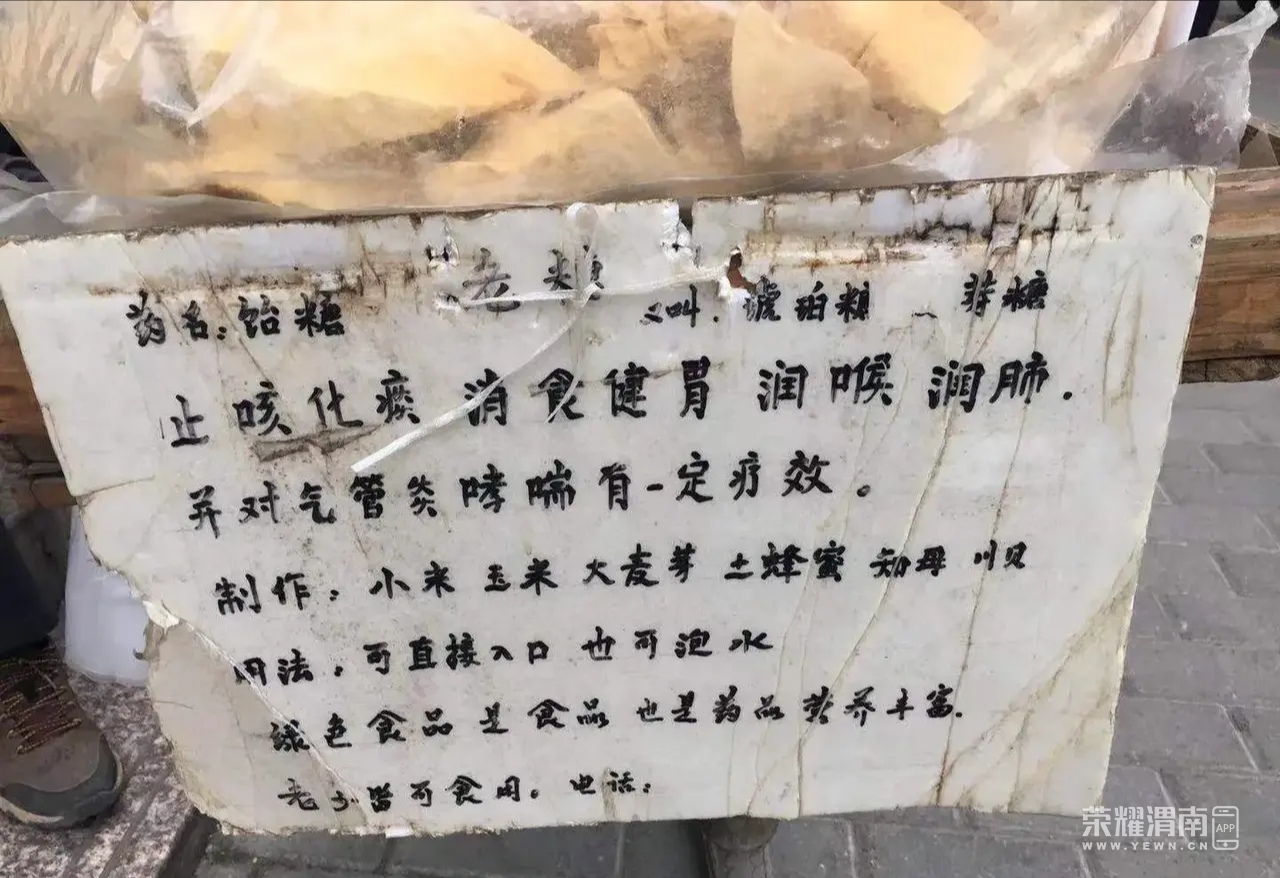 药名:饴糖 老糖 又叫.琥珀糖 芽糖
止咳化痰 消食健胃 润喉 润肺.
并对气管炎哮喘有一定疗效。
制作:小米 玉米 大麦芽 土蜂蜜 知母 川贝
用法:可直接入口 也可泡水
绿色食品是食品也是药品营养丰富.
老少皆可食用。电话:
荣耀渭南 APP
WWW.YEWN.CN